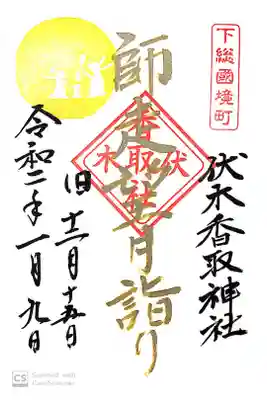 下総國境町
伏木香取神社
師走望月詣り
伏木
香取社
旧十二月十五日
令和二年一月九日
CS Scanned with
CamScanner